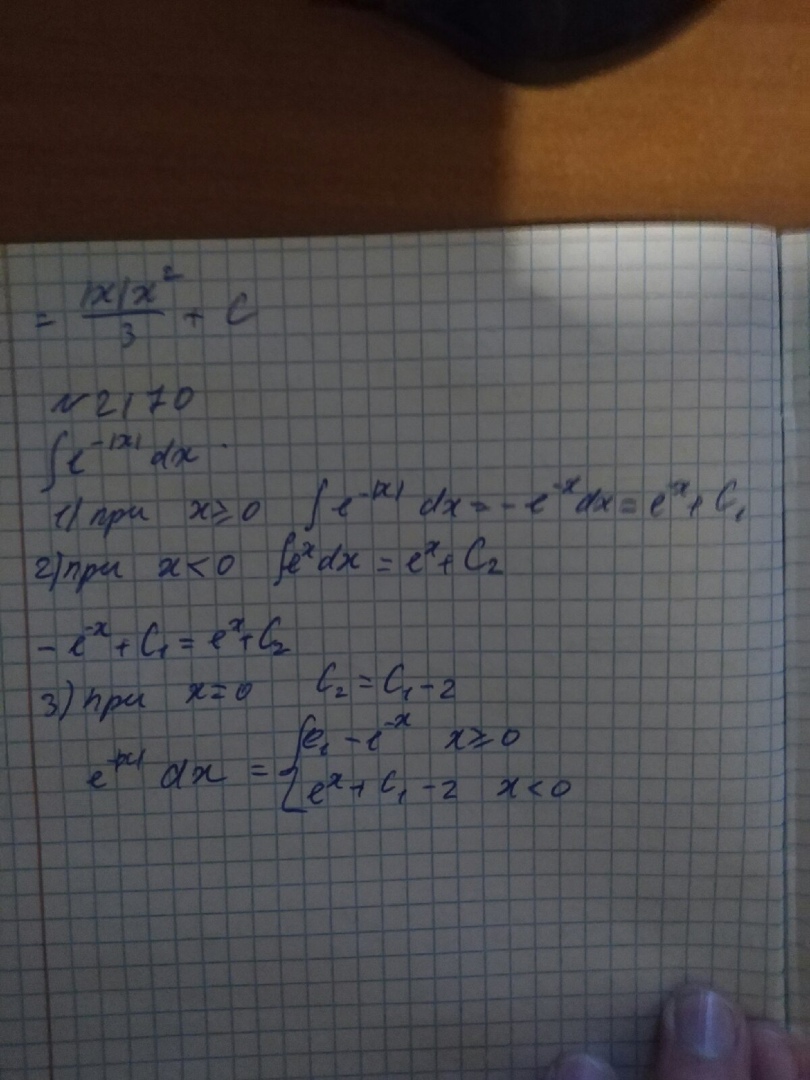 = |x|x²/3 + C
№ 2170
∫e^-|x| dx
1) при x≥0 ∫e^-|x| dx = -e^-x dx = e^-x + C₁
2) при x<0 ∫e^x dx = e^x + C₂
-e^-x + C₁ = e^x + C₂
3) при x=0 C₂ = C₁ - 2
e^-|x| dx = { C₁ - e^-x x≥0
e^x + C₁ - 2 x<0